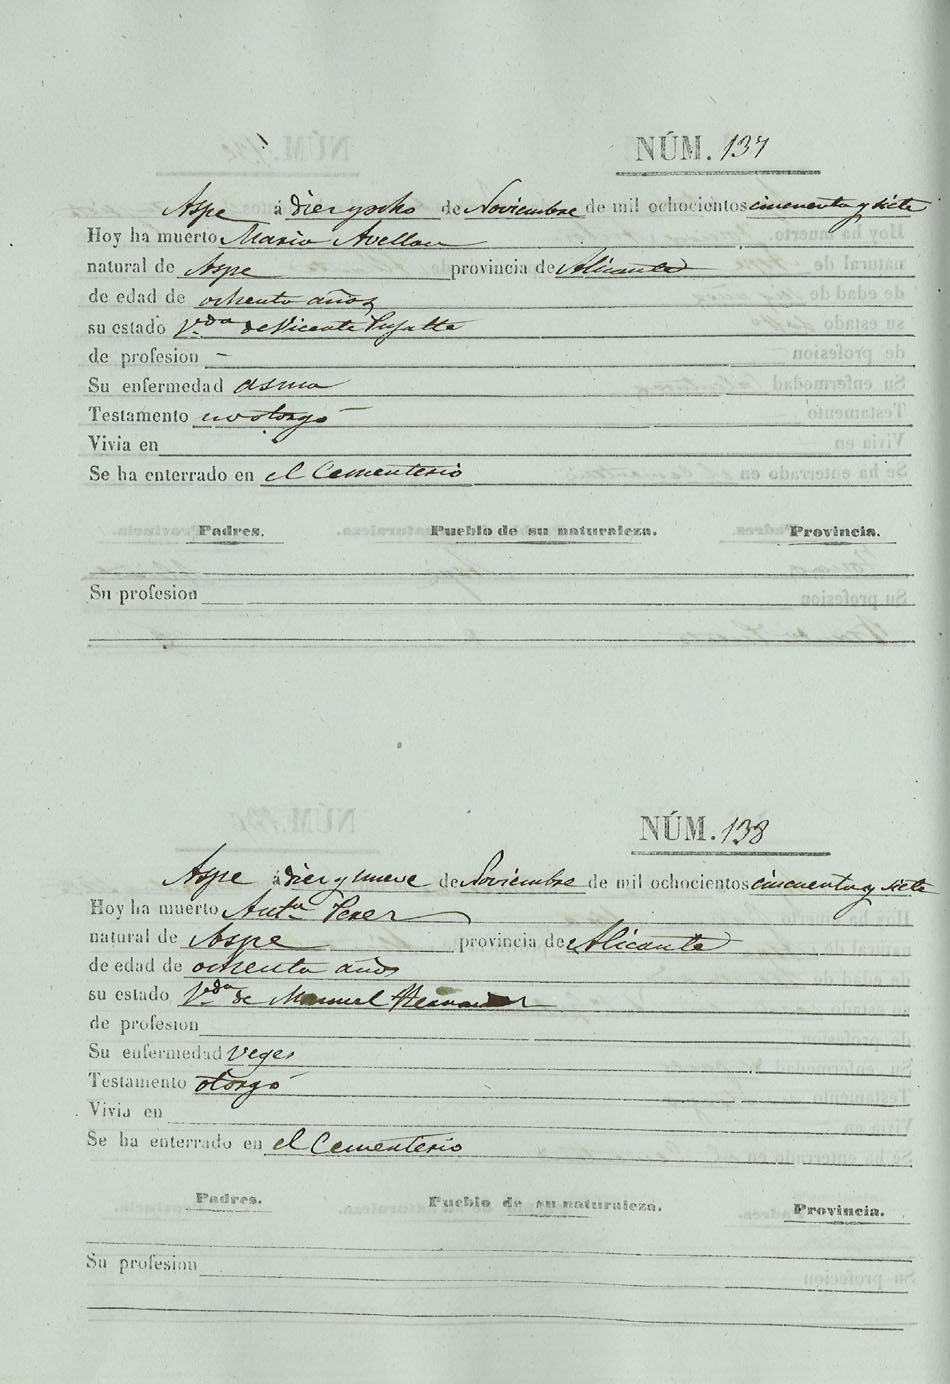 NÚM. 137
Aspe á dier yocho de Noviembre de mil ochocientos cincuenta y siete
Hoy ha muerto Maria Avellan
natural de Aspe provincia de Alicante
de edad de ochenta años
su estado V.da de Vicente Pujalte
de profesion -
Su enfermedad asma
Testamento no otorgó
Vivia en
Se ha enterrado en el Cementerio
Padres. Pueblo de su naturaleza. Provincia.
Su profesion
NÚM. 138
Aspe á dier y nueve de Noviembre de mil ochocientos cincuenta y siete
Hoy ha muerto Ant.a Perer
natural de Aspe provincia de Alicante
de edad de ochenta años
su estado V.da de Manuel
de profesion
Su enfermedad veges
Testamento otorgó
Vivia en
Se ha enterrado en el Cementerio
Padres. Pueblo de su naturaleza. Provincia.
Su profesion